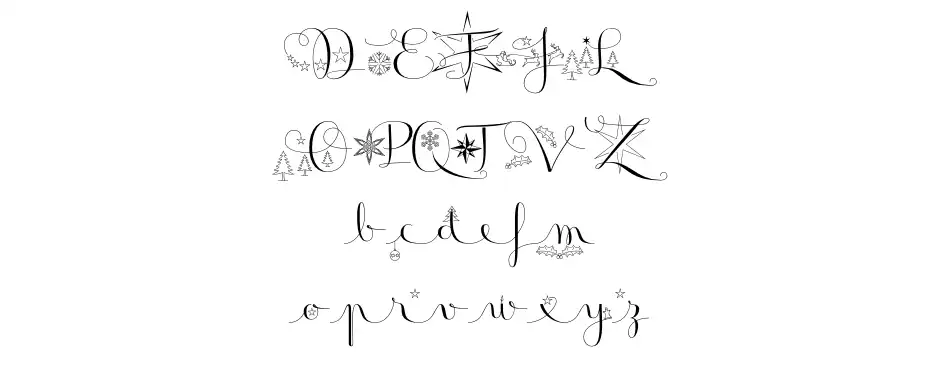 D E F J L
O P Q T V Z
b c d e f m
o p r v w x y z